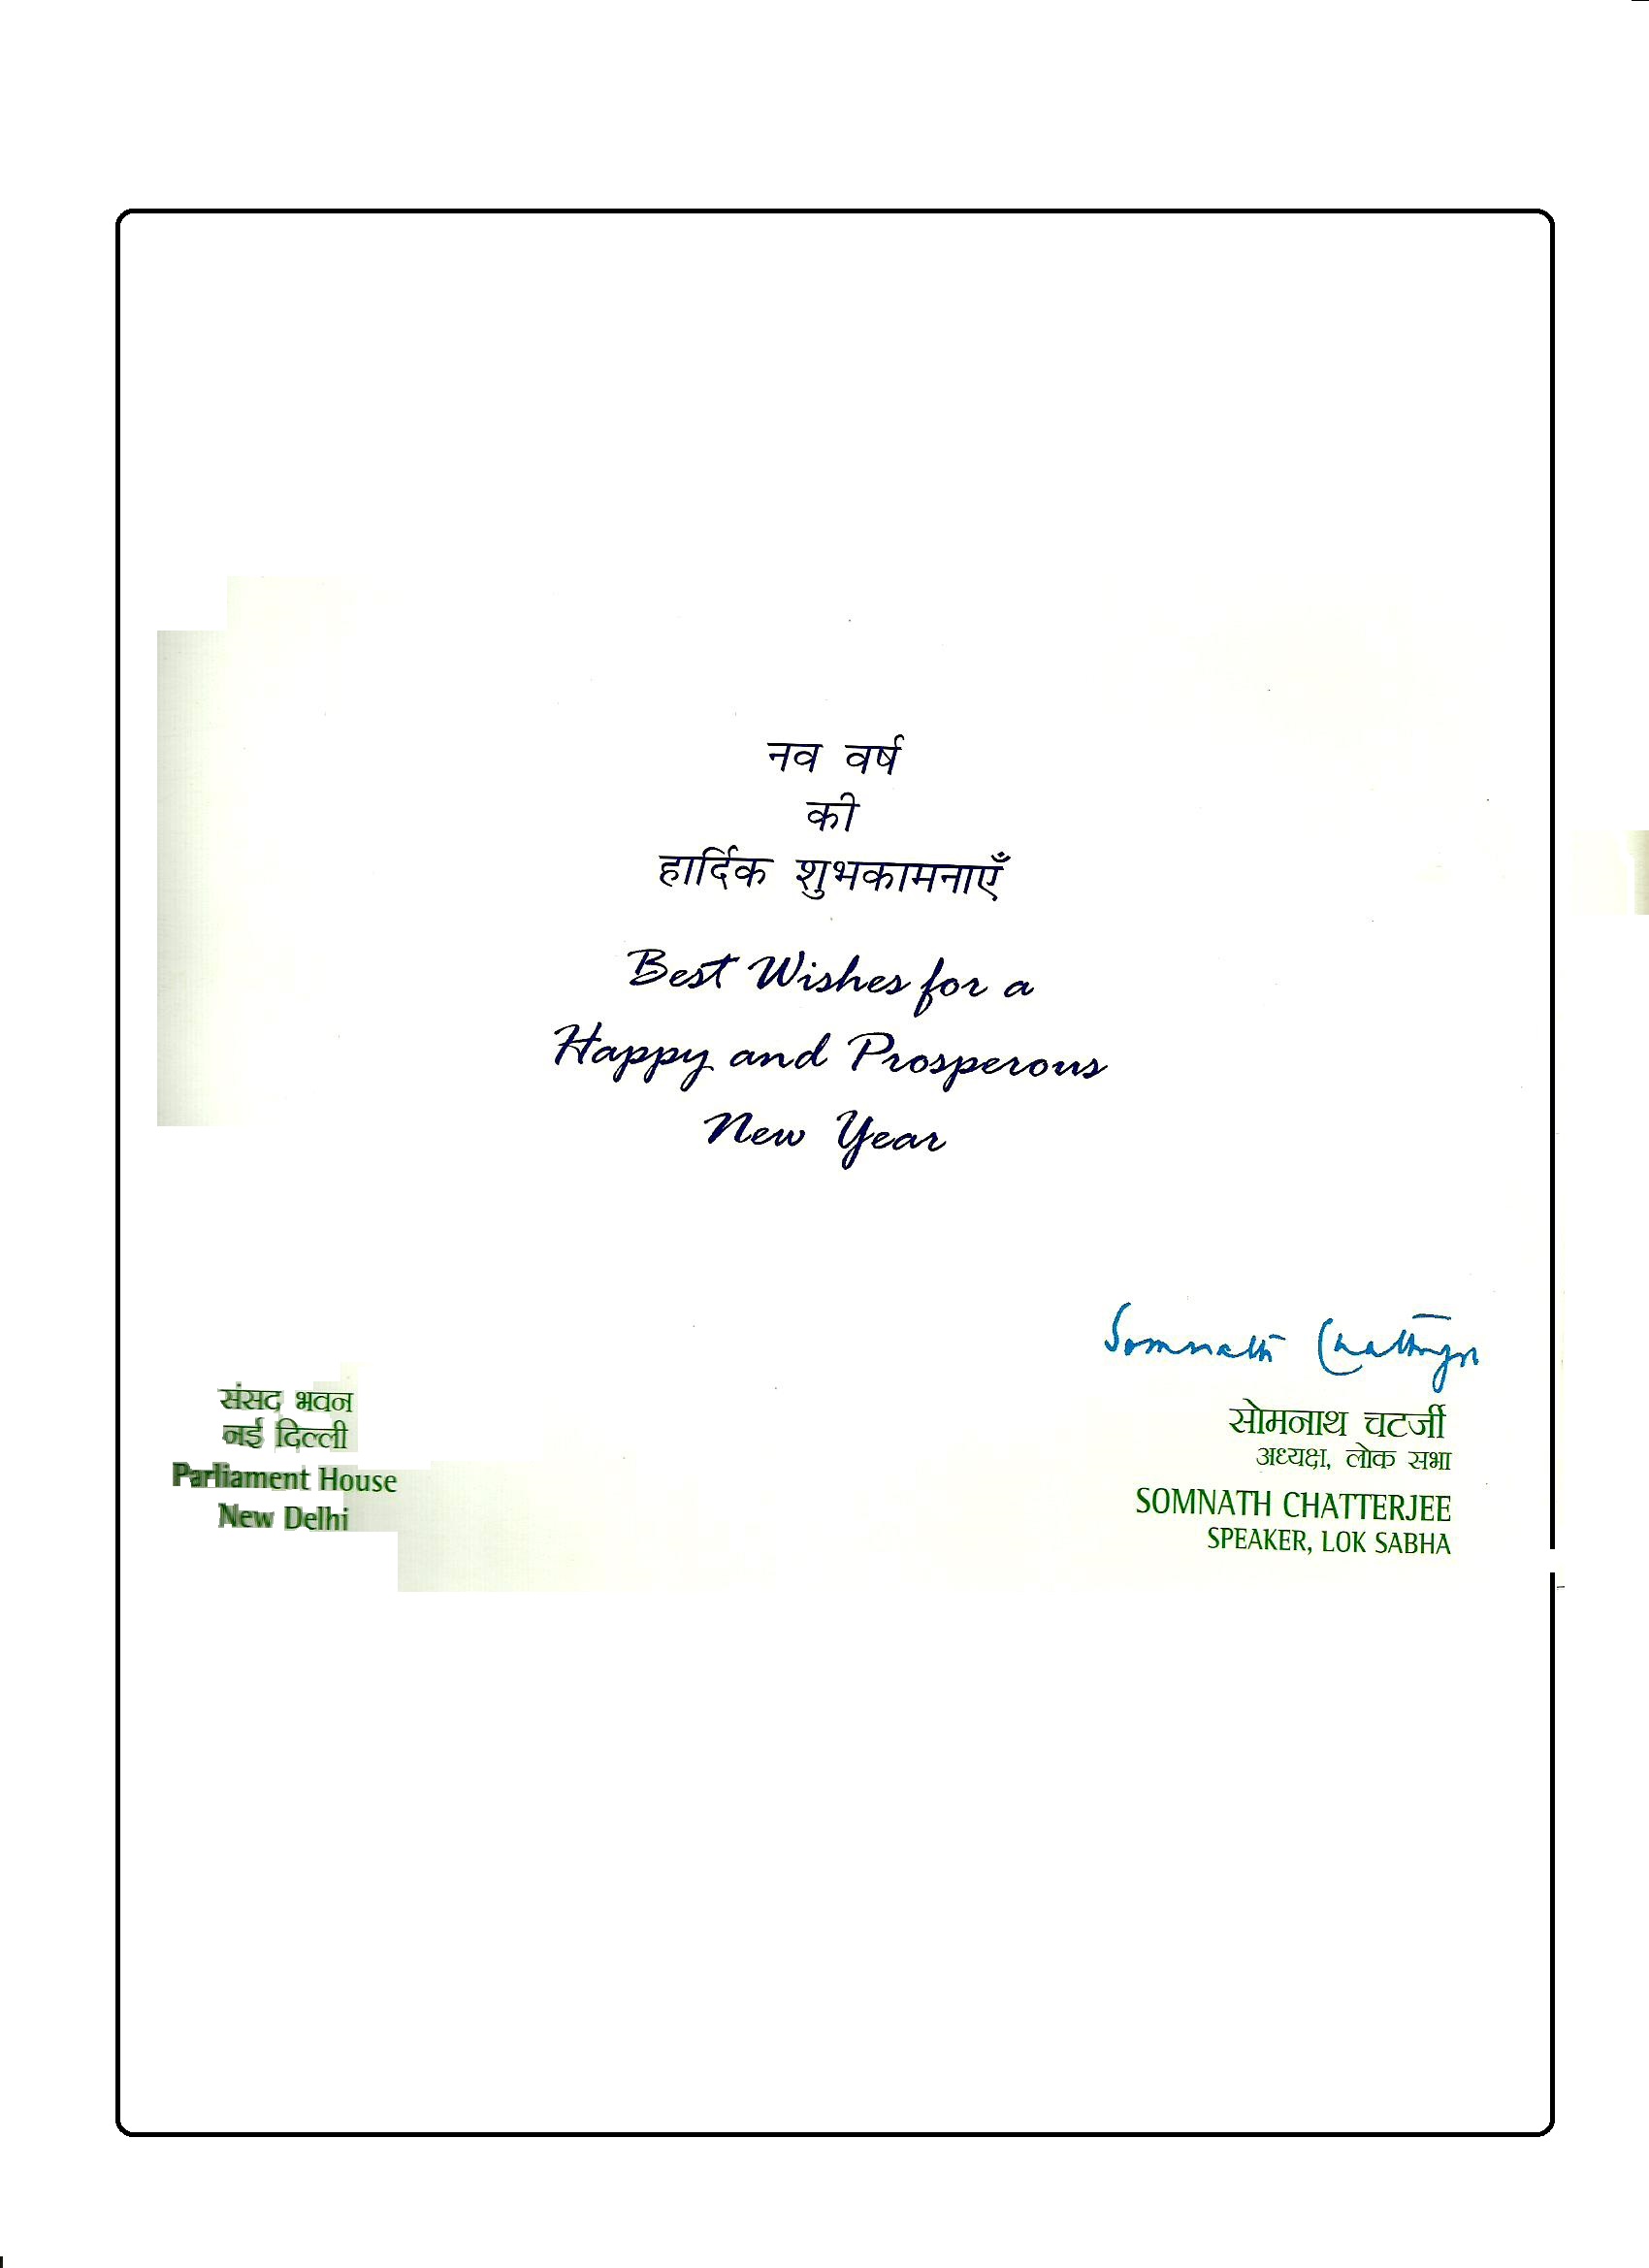 नव वर्ष
की
हार्दिक शुभकामनाएँ
Best Wishes for a
Happy and Prosperous
New Year
Somnath Chatterjee
संसद भवन
नई दिल्ली
Parliament House
New Delhi
सोमनाथ चटर्जी
अध्यक्ष, लोक सभा
SOMNATH CHATTERJEE
SPEAKER, LOK SABHA